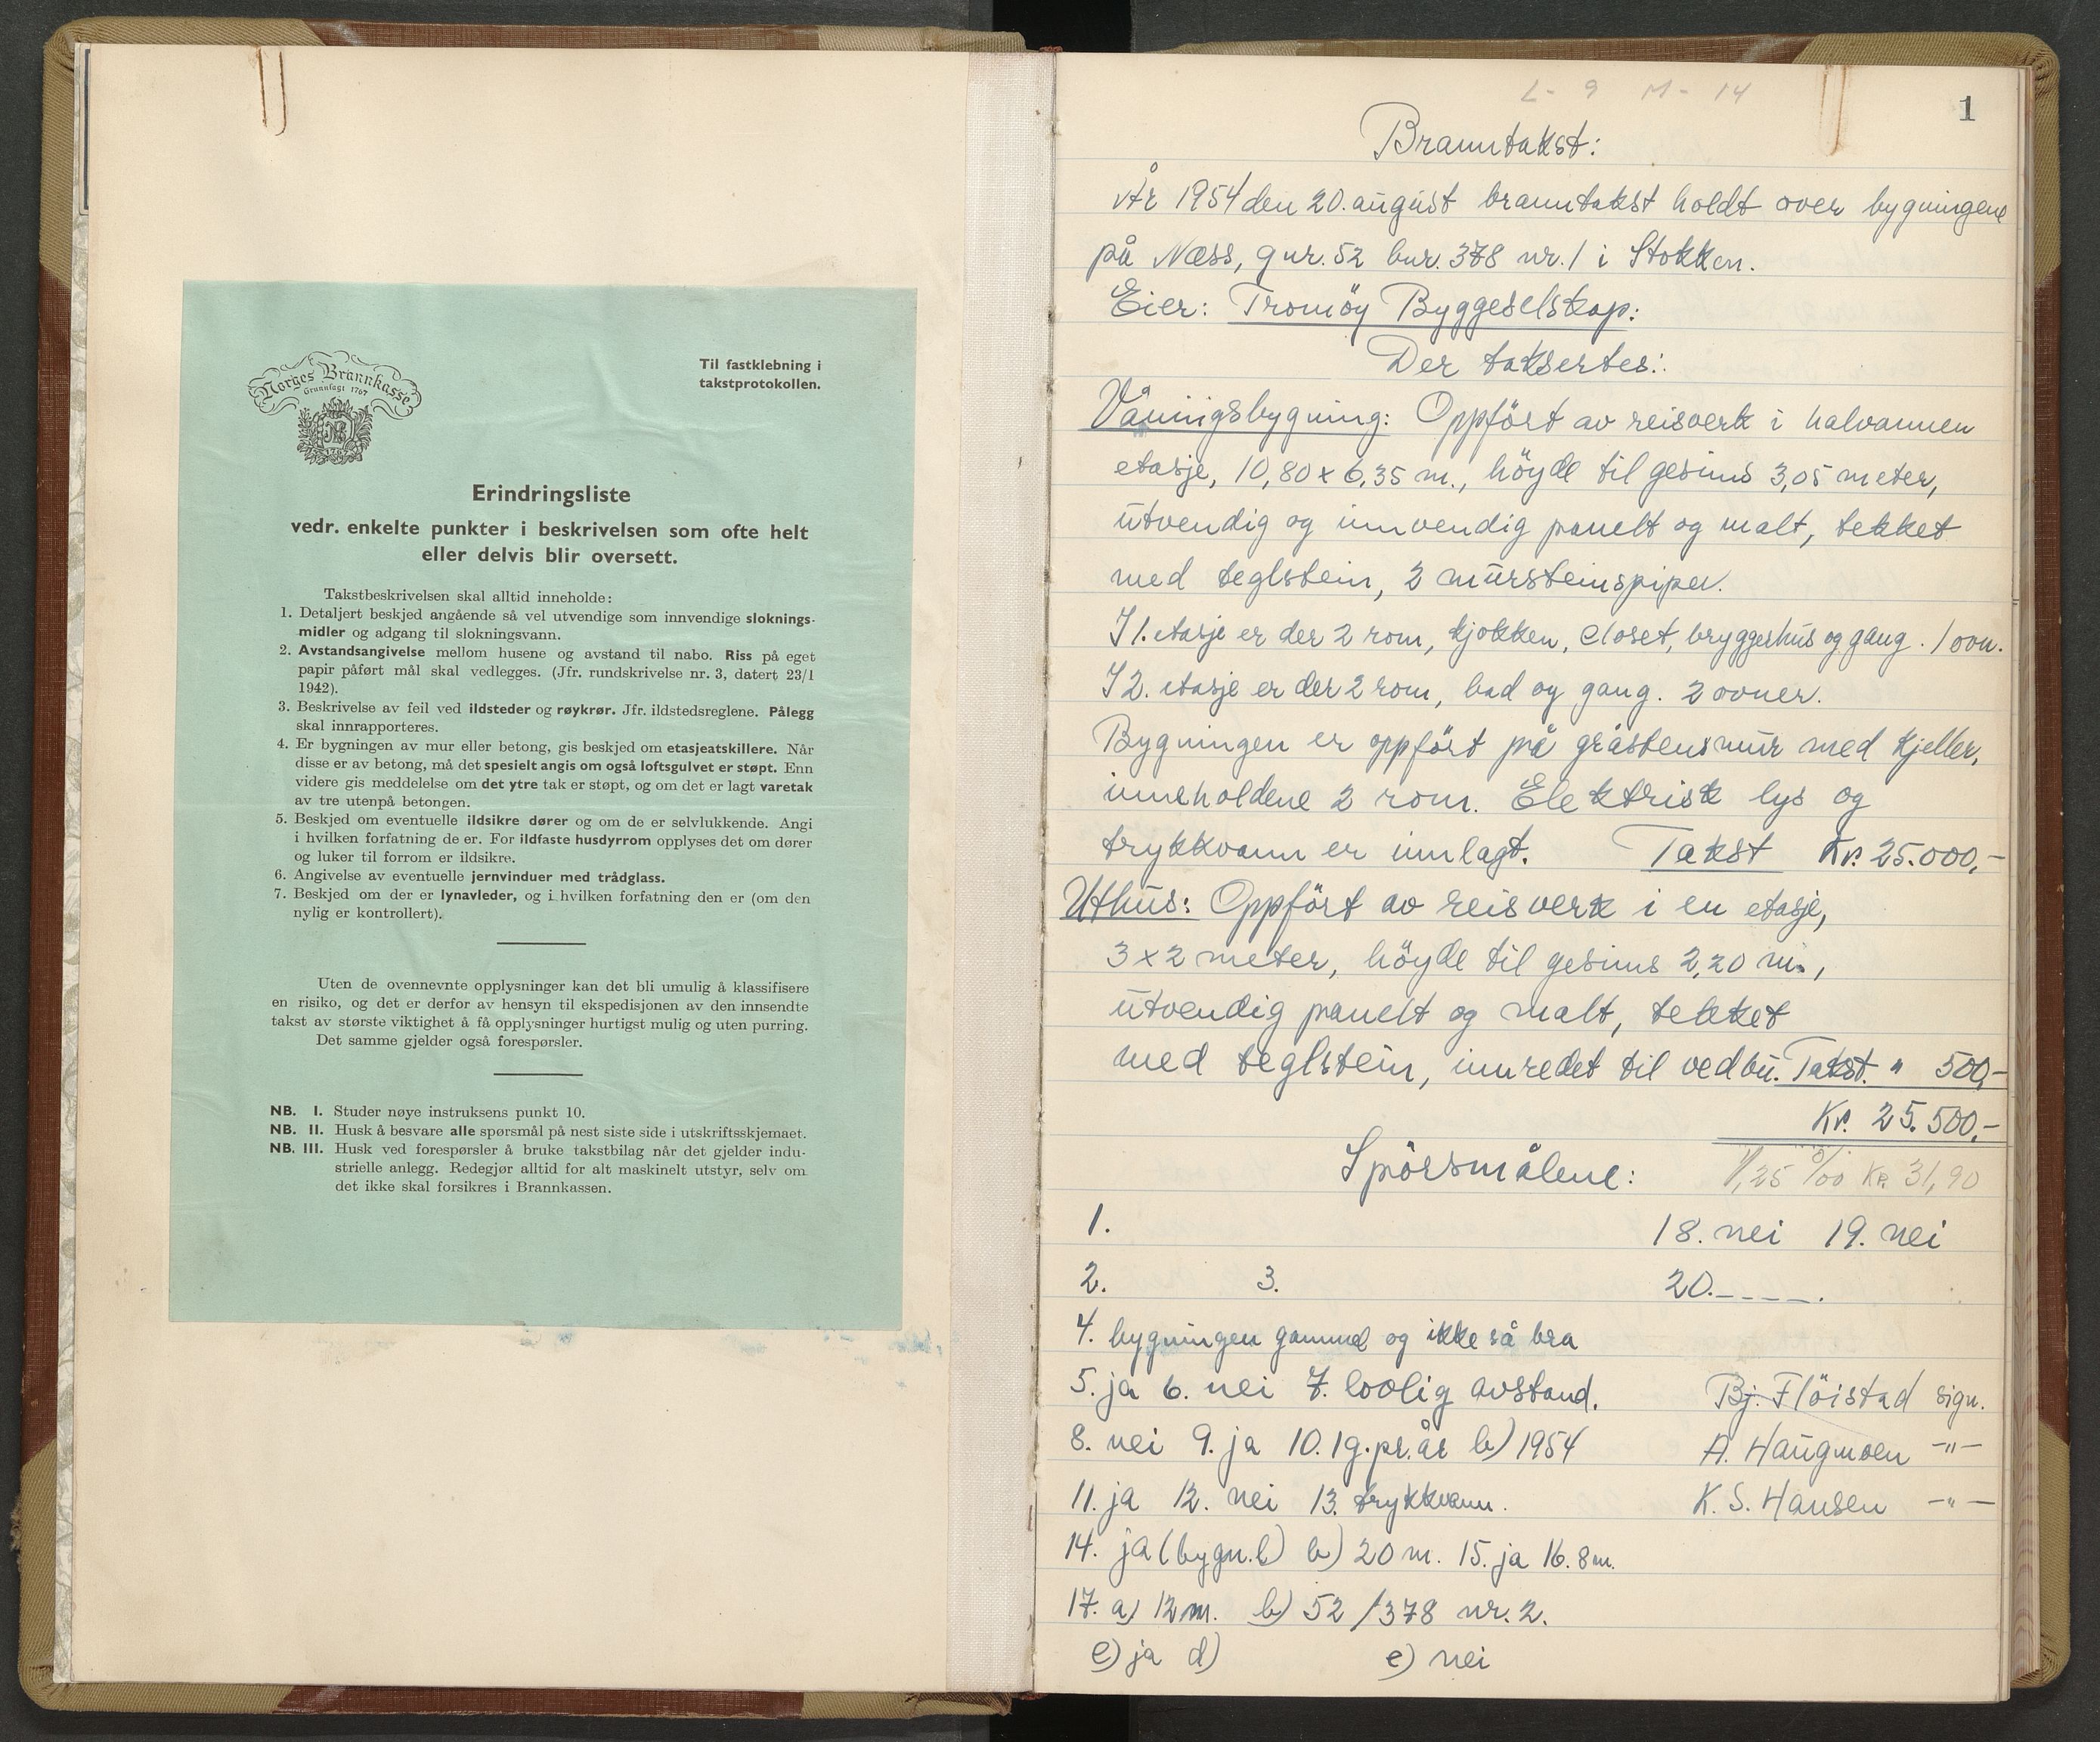 Norges Brannkasse
Grunnlagt 1767
1767
Til fastklebning i
takstprotokollen.
Erindringsliste
vedr. enkelte punkter i beskrivelsen som ofte helt
eller delvis blir oversett.
Takstbeskrivelsen skal alltid inneholde:
1. Detaljert beskjed angående så vel utvendige som innvendige sloknings-
midler og adgang til slokningsvann.
2. Avstandsangivelse mellom husene og avstand til nabo. Riss på eget
papir påført mål skal vedlegges. (Jfr. rundskrivelse nr. 3, datert 23/1
1942).
3. Beskrivelse av feil ved ildsteder og røykrør. Jfr. ildstedsreglene. Pålegg
skal innrapporteres.
4. Er bygningen av mur eller betong, gis beskjed om etasjeatskillere. Når
disse er av betong, må det spesielt angis om også loftsgulvet er støpt. Enn
videre gis meddelelse om det ytre tak er støpt, og om det er lagt varetak
av tre utenpå betongen.
5. Beskjed om eventuelle ildsikre dører og om de er selvlukkende. Angi
i hvilken forfatning de er. For ildfaste husdyrrom opplyses det om dører
og luker til forrom er ildsikre.
6. Angivelse av eventuelle jernvinduer med trådglass.
7. Beskjed om der er lynavleder, og i hvilken forfatning den er (om den
nylig er kontrollert).
Uten de ovennevnte opplysninger kan det bli umulig å klassifisere
en risiko, og det er derfor av hensyn til ekspedisjonen av den innsendte
takst av største viktighet å få opplysninger hurtigst mulig og uten purring.
Det samme gjelder også forespørsler.
NB. I. Studer nøye instruksens punkt 10.
NB. II. Husk å besvare alle spørsmål på nest siste side i utskriftsskjemaet.
NB. III. Husk ved forespørsler å bruke takstbilag når det gjelder indu-
strielle anlegg. Redegjør alltid for alt maskinelt utstyr, selv om
det ikke skal forsikres i Brannkassen.
L - 9 M - 14
1
Branntakst:
År 1954 den 20. august branntakst holdt over bygningene
på Næss, gnr. 52 bnr. 378 nr. 1 i Stokken.
Eier: Tromöy Byggeselskap:
Der taksertes:
Våningsbygning: Oppfört av reisverk i halvannen
etasje, 10,80 x 6,35 m., höyde til gesims 3,05 meter,
utvendig og innvendig panelt og malt, tekket
med teglstein, 2 mursteinspiper.
I 1. etasje er der 2 rom, kjökken, closet, bryggerhus og gang. 1 ovn.
I 2. etasje er der 2 rom, bad og gang. 2 ovner.
Bygningen er oppfört på gråstensmur med kjeller,
inneholdene 2 rom. Elektrisk lys og
trykkvann er innlagt. Takst Kr. 25.000,-
Uthus: Oppfört av reisverk i en etasje,
3 x 2 meter, höyde til gesims 2,20 m.,
utvendig panelt og malt, tekket
med teglstein, innredet til vedbu. Takst. " 500,-
Kr. 25.500.-
1,25 ‰ Kr. 31,90
Spörsmålene:
1. 18. nei 19. nei
2. 3. 20. - - - - .
4. bygningen gammel og ikke så bra
5. ja 6. nei 7. lovlig avstand. Bj. Flöistad sign.
8. nei 9. ja 10. 1 g. pr. år b) 1954 A. Haugmoen -"-
11. ja 12. nei 13. trykkvann. K. S. Hansen -"-
14. ja (bygn. l) b) 20 m. 15. ja 16. 8 m.
17. a) 12 m. b) 52/378 nr. 2.
c) ja d) e) nei